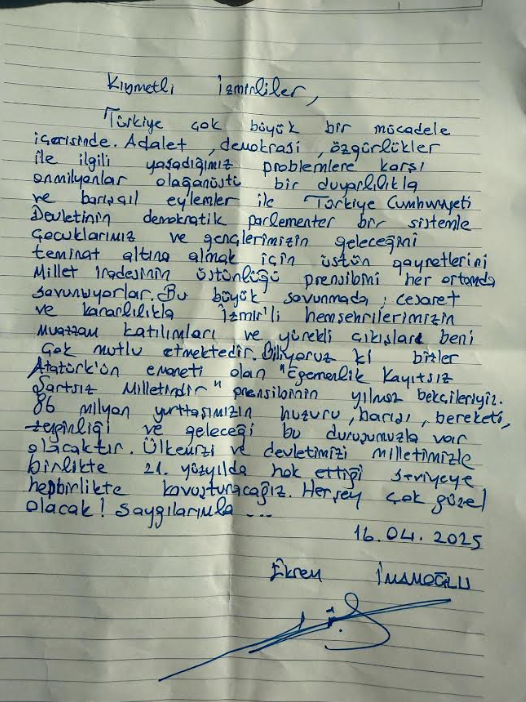 Kıymetli İzmirliler,
Türkiye çok büyük bir mücadele
içerisinde. Adalet, demokrasi, özgürlükler
ile ilgili yaşadığımız problemlere karşı
onmilyonlar olağanüstü bir duyarlılıkla
ve barışçıl eylemler ile Türkiye Cumhuriyeti
Devletinin demokratik parlementer bir sistemle
çocuklarımız ve gençlerimizin geleceğini
teminat altına almak için üstün gayretlerini
Millet iradesinin üstünlüğü prensibini her ortamda
savunuyorlar. Bu büyük savunmada; cesaret
ve kararlılıkla İzmir'li hemşehrilerimizin
muazzam katılımları ve yürekli çıkışları beni
çok mutlu etmektedir. Biliyoruz ki bizler
Atatürk'ün emaneti olan "Egemenlik Kayıtsız
Şartsız Milletindir" prensibinin yılmaz bekçileriyiz.
86 milyon yurttaşımızın huzuru, barışı, bereketi,
zenginliği ve geleceği bu duruşumuzla var
olacaktır. Ülkemizi ve devletimizi milletimizle
birlikte 21. yüzyılda hak ettiği seviyeye
hepbirlikte kavuşturacağız. Herşey çok güzel
olacak! Saygılarımla...
16.04.2025
Ekrem İMAMOĞLU